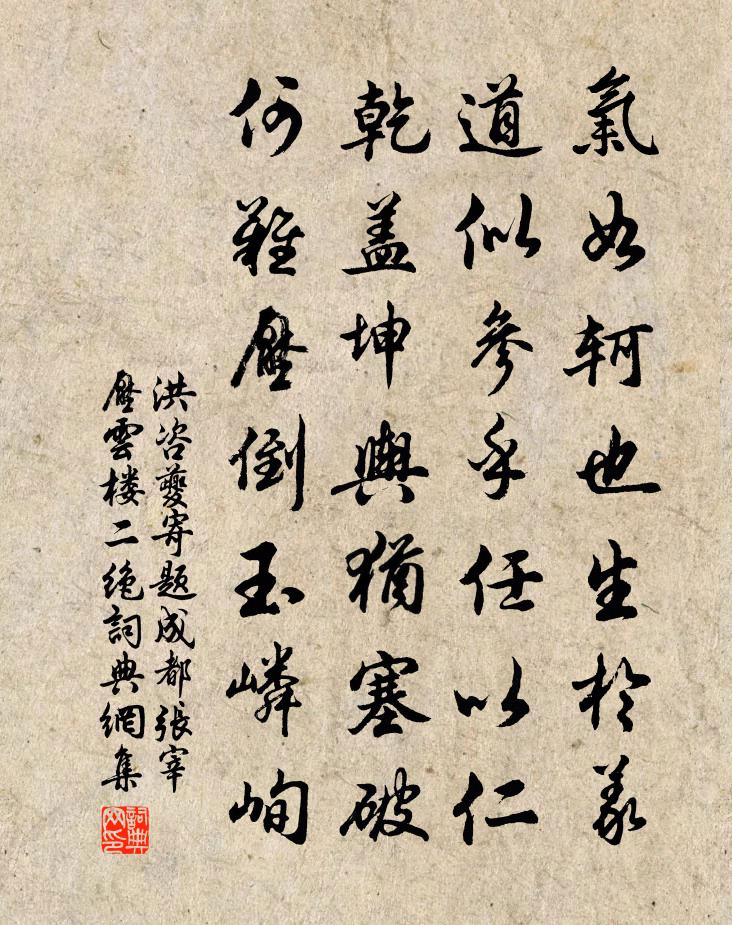 氣如軻也生於義
道似參乎任以仁
乾蓋坤輿猶塞破
何難壓倒玉嶙峋
洪咨夔寄題成都張宰
壓雲楼二絶詞典網集
詞典
网印